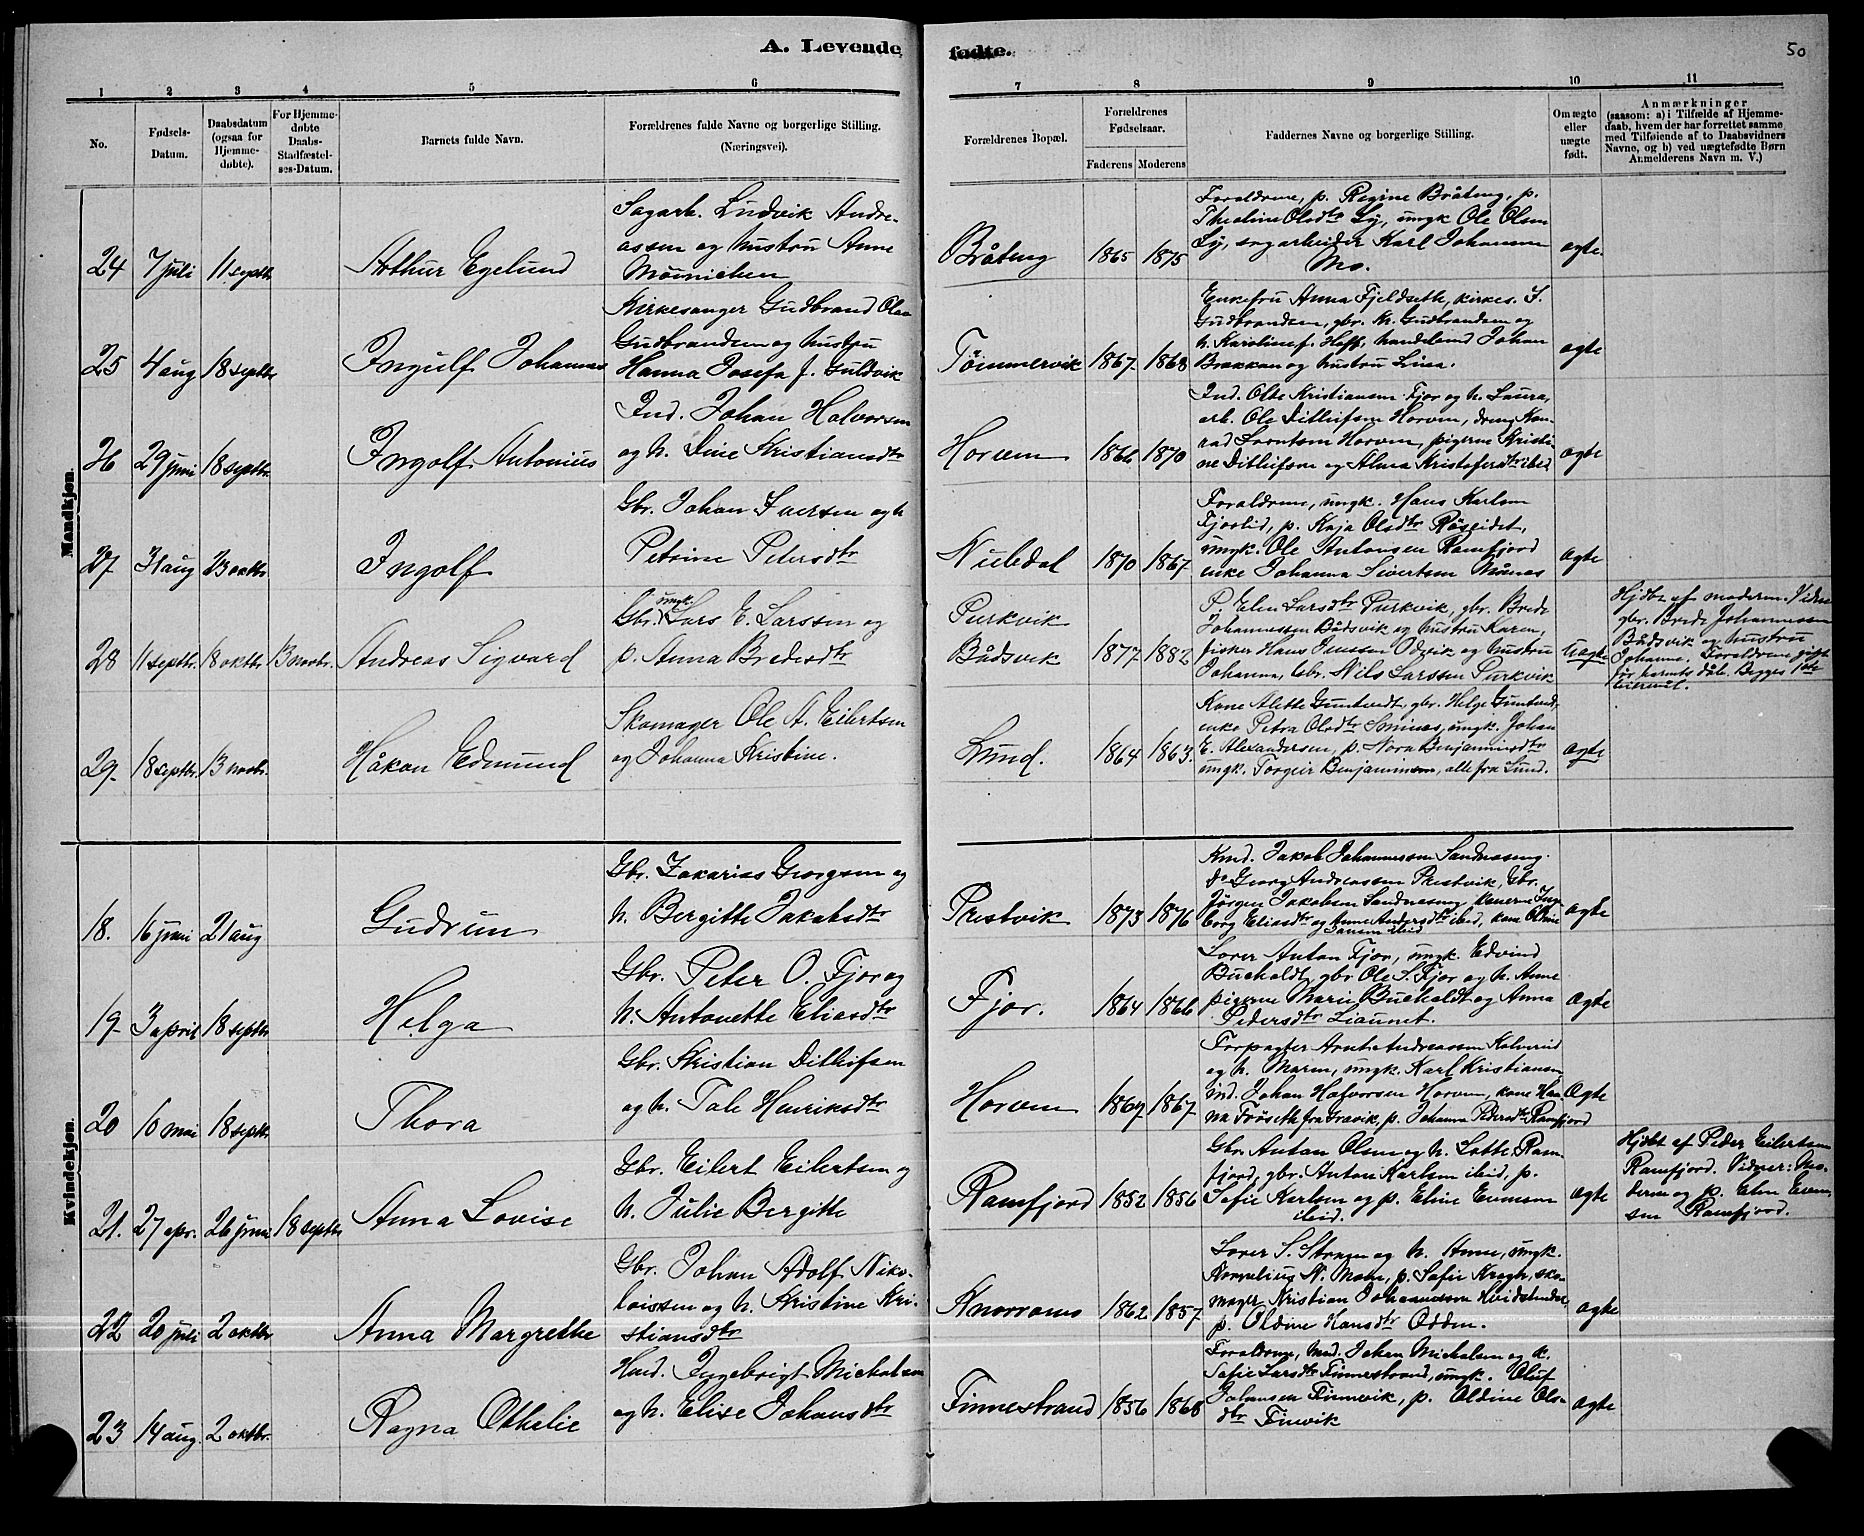 A. Levende fødte.
50
1 2 3 4 5 6 7 8 9 10 11
No.
Fødsels-Datum.
Daabsdatum (ogsaa for Hjemme-døbte).
For Hjemme-døbte Daabs-Stadfæstel-ses-Datum.
Barnets fulde Navn.
Forældrenes fulde Navne og borgerlige Stilling.
(Næringsvei).
Forældrenes Bopæl.
Forældrenes Fødselsaar.
Faderens Moderens
Faddernes Navne og borgerlige Stilling.
Om ægte eller uægte født.
Anmærkninger
(saasom: a) i Tilfælde af Hjemme-
daab, hvem der har forrettet samme
med Tilføiende af to Daabsvidners
Navne, og b) ved uægtefødte Børn
Anmelderens Navn m. V.)
Mandkjøn.
24 7 juli 11 septbr Arthur Egelund
Sagarb. Ludvik Andre-
assen og hustru Anne
Mønnichen
Bråteng 1865 1875
Forældrene, p. Regine Bråteng, p.
Thealine Olsdtr Ly, ungk Ole Olsen
Ly, sagarbeider Karl Johansen
Mo.
ægte.
25 4 aug 18 septbr Ingulf Johannes
Kirkesanger Gudbrand Olan
Gudbrandsen og hustru
Hanna Josefa f. Guldvik
Tømmervik 1867 1868
Enkefru Anna Fjeldseth, kirkes. S.
Gudbrandsen, gbr. Kr. Gudbrandsen og
h. Karoline f. Hoff, handelsmd Johan
Brækkan og hustru Lina.
ægte
26 29 juni 18 septbr. Ingolf Antonius
Ind. Johan Halvorsen
og h. Dine Kristiansdtr
Horven 1866 1870
Ind. Olde Kristiansen Fjor og h. Laura,
arb. Ole Ditlefsen Horven, dreng Kon-
rad Lorntsen Horven, pigerne Kristi-
ne Ditlefsen og Alma Kristofersdtr ibid.
ægte
27 31 aug 23 oktbr. Ingolf
Gbr. Johan Iversen og h
Petrine Petersdtr
Nubdal 1870 1867
Forældrene, ungk. Hans Karlsen
Fjorlid, p. Kaja Olsdtr Røseidet,
ungk. Ole Antonsen Ramfjord
enke Johanna Sivertsen Månes
ægte
28 11 septbr. 18 oktbr. 13 novbr. Andreas Sigvard
Gbr. ungk. Lars E. Larssen og
p. Anna Bredesdtr
Purkvik
Bådsvik 1877 1882
P. Elen Larsdtr Purkvik, gbr. Brede
Johannessen Bådsvik og hustru Karen,
fisker Hans Jenssen Odvik og hustru
Johanna, Gbr. Nils Larssen Purkvik
uægte
Hjdbt af moderen. Vidne
gbr. Brede Johannessen
Bådsvik og hustru
Johanne. Forældrene gift
før barnets dåb. Begges 1ste
leiermål.
29 18 septbr. 13 novbr. Håkon Edmund
Skomager Ole A. Eilertsen
og Johanna Kristine.
Lund. 1864 1863.
Kone Alette Gundersdtr, gbr. Helge Lund,
enke Petra Olsdtr Sminæs, ungk. Johan
E. Alexandersen, p. Nora Benjaminsdtr
ungk. Torgeir Benjaminsen, alle fra Lund.
ægte
Kvindekjøn.
18. 16 juni 21 aug Gudrun
Gbr. Zakarias Georgsen og
h. Bergitte Jakobsdtr
Prestvik 1873 1876
Kmd. Jakob Johannessen Sandnaseng.
Do Georg Andreassen Prestvik, Gbr.
Jørgen Jakobsen Sandnaseng konerne Inge-
borg Eliasdtr og Anne Andersdtr ibid, kone Oldine
Jansen ibid
ægte
19 3 april 18 septbr. Helga
Gbr. Peter O. Fjor og
h. Antonette Eliasdtr
Fjor. 1864 1866
Lærer Anton Fjor, ungk. Edvind
Bucholdt, gbr. Ole S. Fjor og h. Anne
pigerne Marie Bucholdt og Anna
Pedersdtr Liaunet.
ægte
20 10 mai 18 septbr. Thora
Gbr. Kristian Ditlefsen
og h. Tale Henriksdtr
Horven 1869 1867
Forpagter Arnt Andreassen Kalverud
og h. Maren, ungk. Karl Kristiansen,
ind. Johan Halvorsen Horven, kone Han-
na Frøseth fra Gravik, p. Johanna Pedersdtr Ramfjord
Ægte
21. 27 apr. 26 juni 18 septbr Anna Lovise
Gbr. Eilert Eilertsen og
h. Julie Bergitte
Ramfjord 1852 1856
Gbr. Anton Olsen og h. Lotte Ram-
fjord, gbr. Anton Karlsen ibid, p.
Sofie Karlsen og p. Eline Evensen
ibid.
ægte
Hjdbt af Peder Eilertsen
Ramfjord. Vidner: Mo-
deren og p. Elen Even-
sen Ramfjord.
22 20 juli 2 oktbr. Anna Margrethe
Gbr. Johan Adolf Niko-
laissen og h. Kristine Kri-
stiansdtr
1862 1857
Lærer S. Strøm og h. Anne, ungk.
Kornelius N. Moen, p. Sofie Krogh, sko-
mager Kristian Johannessen
p. Oldine Hansdtr Odden.
ægte
23 14 aug. 2 oktbr. Ragna Othelie
Hmd. Ingebrigt Mickalsen
og h. Elise Johansdtr
Finnestrand 1856 1868
Forældrene, hmd. Johan Mickalsen og k.
Sofie Larsdtr Finnestrand, ungk. Oluf
Johansen Finnevik, p. Oldine Ols-
dtr Finvik
ægte